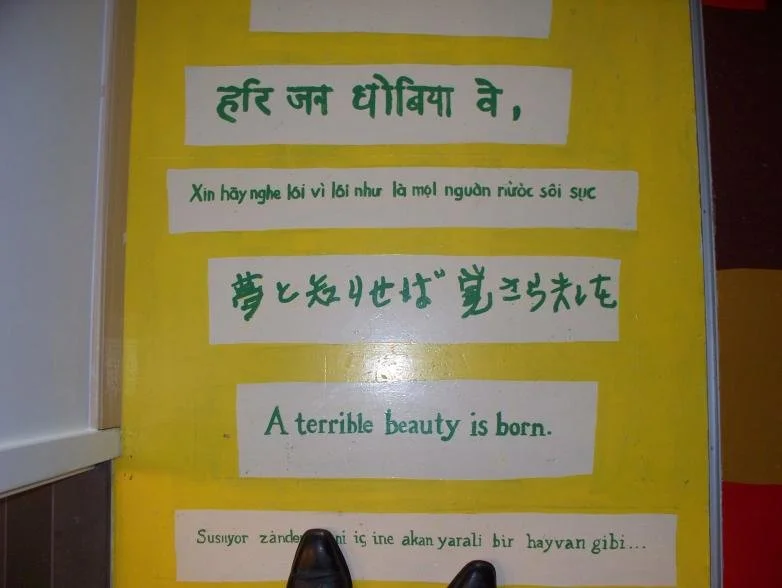 हरि जन धोबिया वे,
Xin hãy nghe lối vì lối như là mọl nguàn nước sôi sục
夢と知りせば覚さらましを
A terrible beauty is born.
Susıyor iç ine akan yarali bir hayvan gibi...